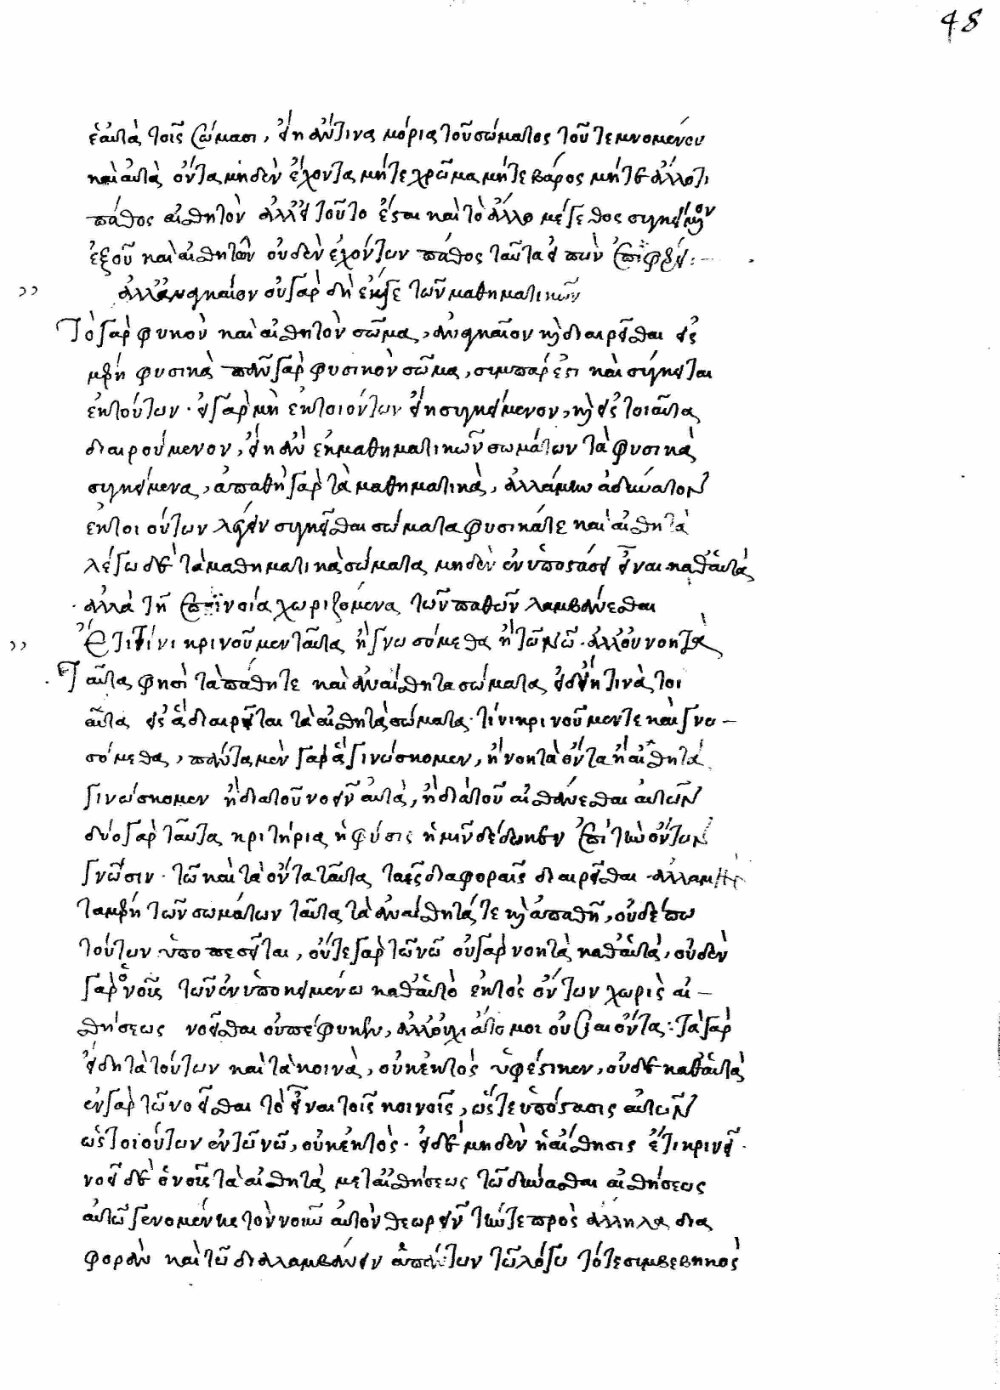 48
ἑαυτὰ τοῖς σώμασι, εἴη ἄν τινα μόρια τοῦ σώματος τοῦ τεμνομένου
καὶ αὐτὰ ὄντα μηδὲν ἔχοντα μήτε χρῶμα μήτε βάρος μήτε ἄλλο τι
πάθος αἰσθητὸν ἀλλ' εἰ τοῦτο ἔσται καὶ τὸ ἄλλο μέγεθος συγκείμενον
ἐξ οὗ καὶ αἰσθητῶν οὐδὲν ἐχόντων πάθος ταῦτα εἰπὼν ἐπιφέρει:
ἀλλ' ἀναγκαῖον οὐ γὰρ δὴ ἐκ γε τῶν μαθηματικῶν
Τὸ γὰρ φυσικὸν καὶ αἰσθητὸν σῶμα, ἀναγκαῖον καὶ διαιρεῖσθαι εἰς
μέρη φυσικὰ πᾶν γὰρ φυσικὸν σῶμα, συμπάρεστι καὶ σύγκειται
ἐκ τούτων. εἰ γὰρ μὴ ἐκ τοιούτων εἴη συγκείμενον, καὶ εἰς τοιαῦτα
διαιρούμενον, εἴη ἂν ἐκ μαθηματικῶν σωμάτων τὰ φυσικὰ
συγκείμενα, ἀπαθῆ γὰρ τὰ μαθηματικά, ἀλλὰ μὴν ἀδύνατον
ἐκ τοιούτων λέγειν συγκεῖσθαι σώματα φυσικά τε καὶ αἰσθητὰ
λέγω δὲ τὰ μαθηματικὰ σώματα μηδὲν ἐν ὑποστάσει εἶναι καθ' αὑτὰ
ἀλλὰ τῇ ἐπινοίᾳ χωριζόμενα τῶν παθῶν λαμβάνεσθαι
Ἔτι τίνι κρινοῦμεν ταῦτα ἢ γνωσόμεθα ἢ τῷ νῷ. ἀλλ' οὐ νοητὰ
Ταῦτα φησὶ τὰ πάθη τε καὶ ἀναίσθητα σώματα εἰ δ' εἴη τινὰ τοι
αῦτα εἰς ἃ διαιρεῖται τὰ αἰσθητὰ σώματα. τίνι κρινοῦμέν τε καὶ γνω
σόμεθα, πάντα μὲν γὰρ ἃ γινώσκομεν, ἢ νοητὰ ὄντα ἢ αἰσθητὰ
γινώσκομεν ἢ διὰ τοῦ νοεῖν αὐτά, ἢ διὰ τοῦ αἰσθάνεσθαι αὐτῶν
δύο γὰρ ταῦτα κριτήρια ἡ φύσις ἡμῖν δέδωκεν ἐπὶ τὴν ὄντων
γνῶσιν. τῷ καὶ τὰ ὄντα ταῦτα ταῖς διαφοραῖς διαιρεῖσθαι. ἀλλὰ μὴν
τὰ μέρη τῶν σωμάτων ταῦτα τὰ ἀναίσθητά τε καὶ ἀπαθῆ, οὐδέπω
τούτων ὑποπεσεῖται, οὔτε γὰρ τῷ νῷ οὐ γὰρ νοητὰ καθ' αὑτά, οὐδὲν
γὰρ ὁ νοῦς τῶν ἐν ὑποκειμένῳ καθ' αὑτὸ ἐκτὸς ὄντων χωρὶς αἰ
σθήσεως νοεῖσθαι οὐ πέφυκεν, ἀλλ' οὐχὶ ἄτομοι οὐσίαι ὄντα: τὰ γὰρ
εἴδη τὰ τούτων καὶ τὰ κοινά, οὐκ ἐκτὸς ὑφέστηκεν, οὐδὲ καθ' αὑτὰ
ἐν γὰρ τῷ νοεῖσθαι τὸ εἶναι τοῖς κοινοῖς, ὥστε ὑπόστασις αὐτῶν
ὡς τοιούτων ἐν τῷ νῷ, οὐκ ἐκτός. εἰ δὲ μηδὲν ἡ αἴσθησις ἔτι κρινεῖ.
νοεῖ δὲ ὁ νοῦς τὰ αἰσθητὰ μετ' αἰσθήσεως τῷ δύνασθαι αἰσθήσεως
αὐτῷ γενομένης τὸν νοῦν αὐτὸν θεωρεῖν τήν τε πρὸς ἄλληλα δια
φορὰν καὶ τῷ διαλαμβάνειν ἁπάντων τῷ λόγῳ τό τε συμβεβηκὸς